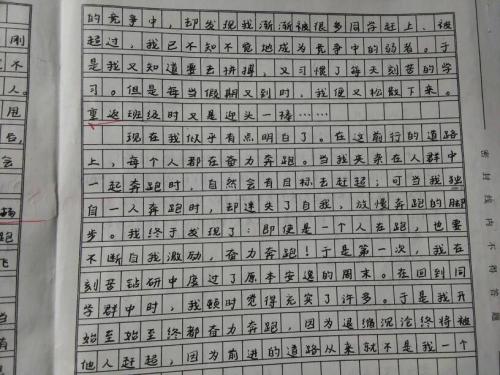 的竞争中,却发现我渐渐被很多同学赶上、被
超过,我已不知不觉地成为竞争中的弱者。于
是我又知道要去拼搏,又习惯了每天刻苦的学
习。但是每当假期又到时,我便又松散下来。
重返班级时又是迎头一棒……
现在我似乎有点明白了。在这前行的道路
上,每个人都在奋力奔跑。当我夹杂在人群中
一起奔跑时,自然会有目标去赶超;可当我独
自一人奔跑时,却迷失了自我,放慢奔跑的脚
步。我终于发现了:即便是一个人在跑,也要
不断自我激励,奋力奔跑!于是第一次,我在
刻苦钻研中度过了原本安逸的周末。在回到同
学群中时,我顿时觉得充实了许多。于是我开
始至始至终都奋力奔跑,因为退缩沉沦终将被
他人赶超,因为前进的道路从来就不是我一个
密封线内不得答题